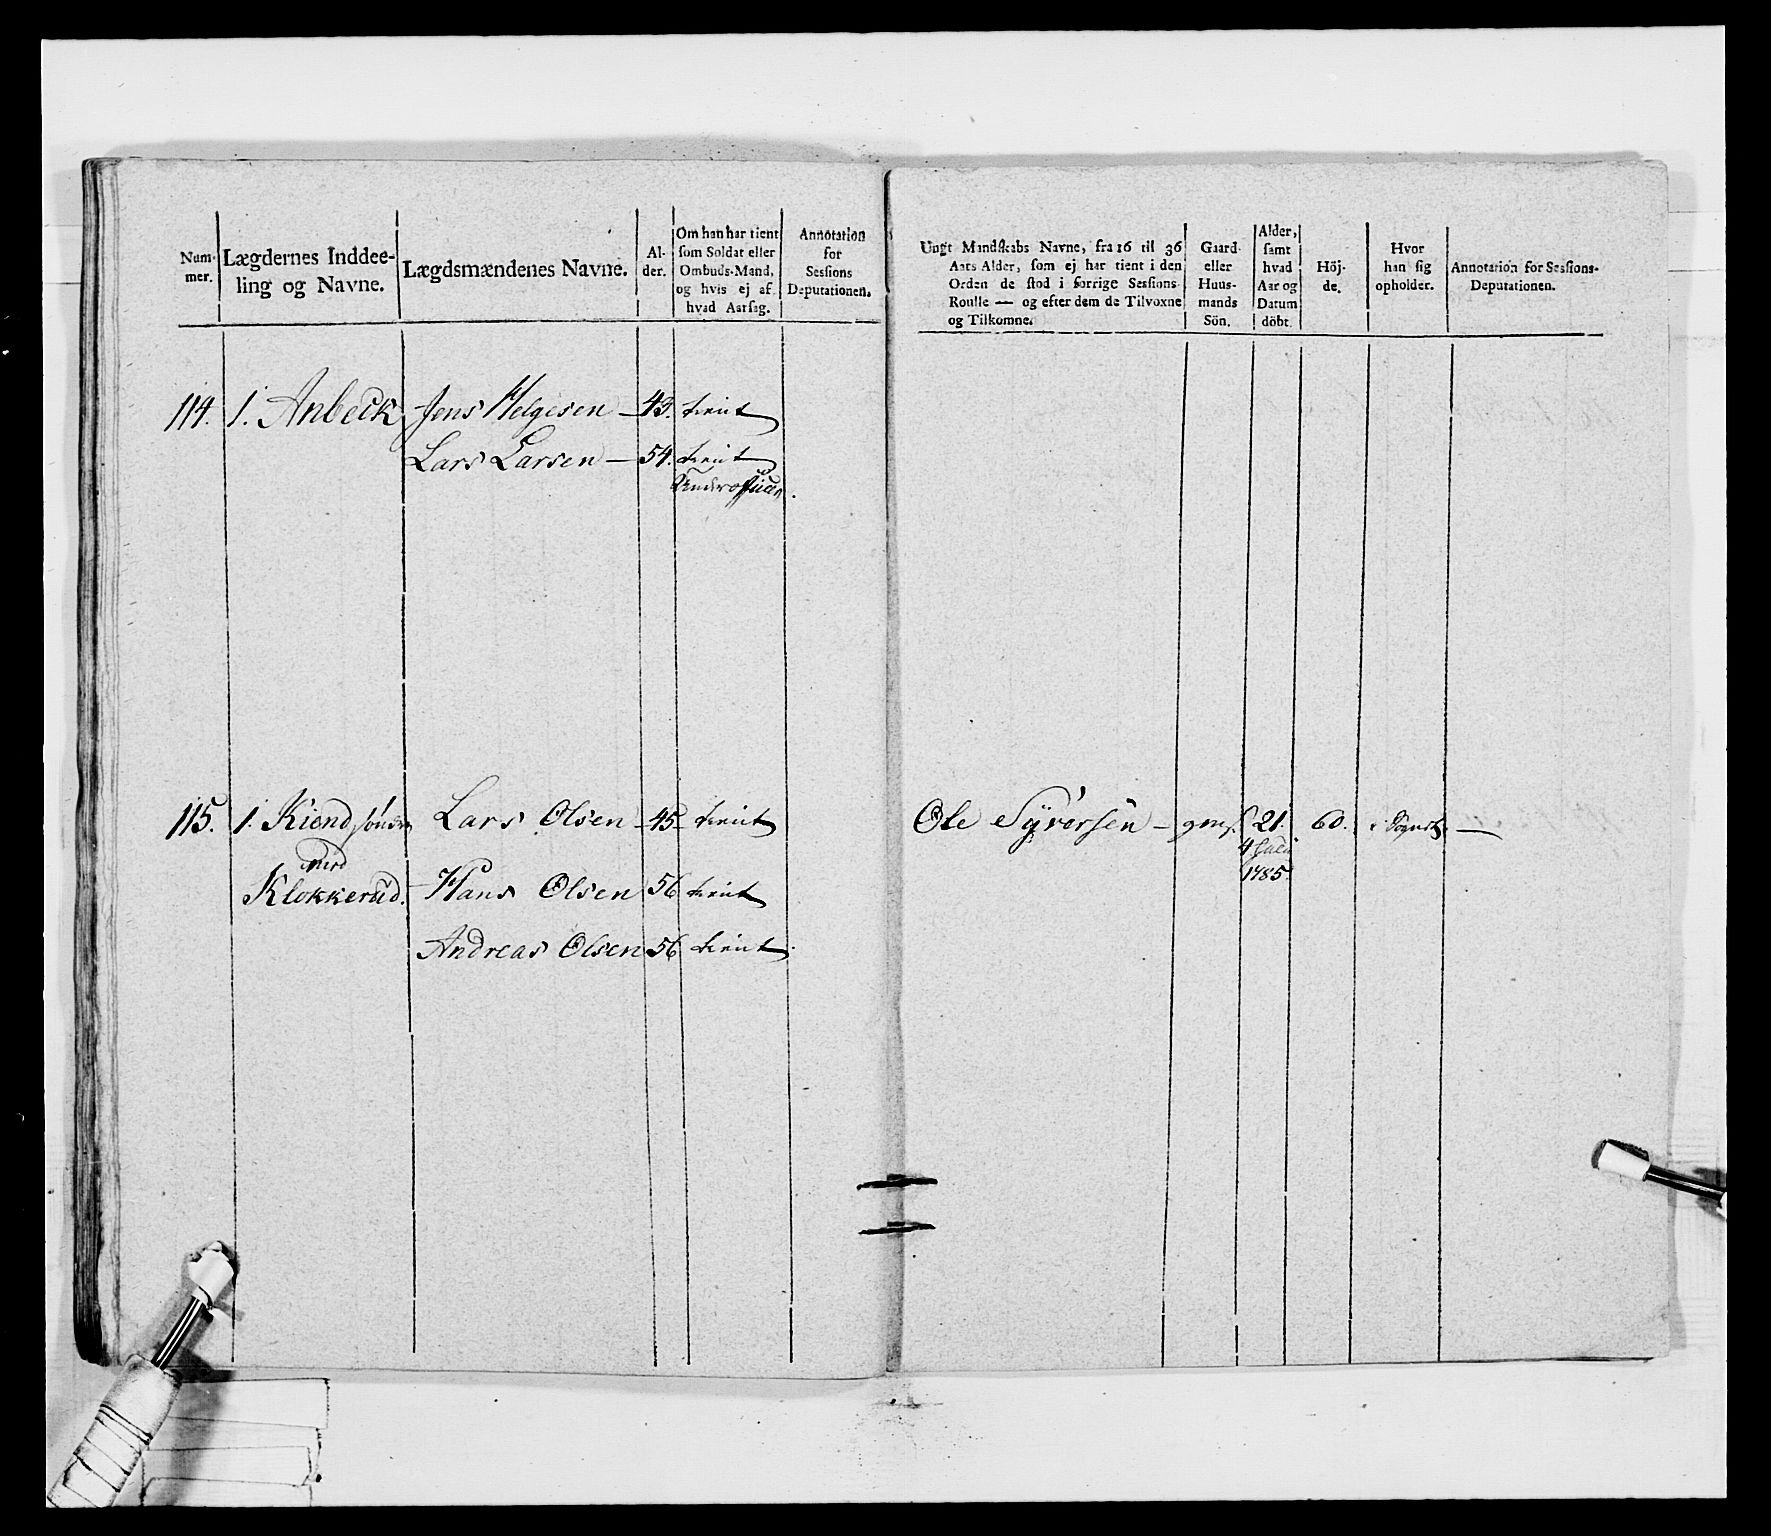 Num-
mer.
Lægdernes Inddee-
ling og Navne.
Lægdsmændenes Navne.
Al-
der.
Om han har tient
som Soldat eller
Ombuds-Mand,
og hvis ej af
hvad Aarsag.
Annotation
for
Sessions
Deputationen.
Ungt Mandskabs Navne, fra 16 til 36
Aars Alder, som ej har tient i den
Orden de stod i forrige Sessions-
Roulle — og efter dem de Tilvoxne
og Tilkomne.
Gaard-
eller
Huus-
mands
Sön.
Alder,
samt
hvad
Aar og
Datum
döbt.
Höj-
de.
Hvor
han sig
opholder.
Annotation for Sessions-
Deputationen.
114. 1. Anbeck Jens Helgesen — 43. tient
Lars Larsen — 54. tient
Underofficer.
115. 1. Kiend søndre Lars Olsen — 45 — tient
med
Klokkerud. Hans Olsen 56 tient
Andreas Olsen 56 tient.
Ole Syversen — gms. 21. 60. i Sognet —
4
1785.